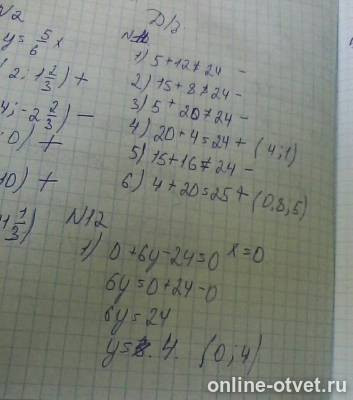 N2
y = 5/6 x
2; 1 2/3) +
4; -2 2/3) -
; 0) +
10) +
1/3)
Д/з
1) 5+12≠24 -
2) 15+8≠24 -
3) 5+20≠24 -
4) 20+4=24 + (4;1)
5) 15+16≠24 -
6) 4+20=25 + (0,8;5)
N12
1) 0+6y-24=0 x=0
6y=0+24-0
6y=24
y= 4. (0;4)
online-otvet.ru